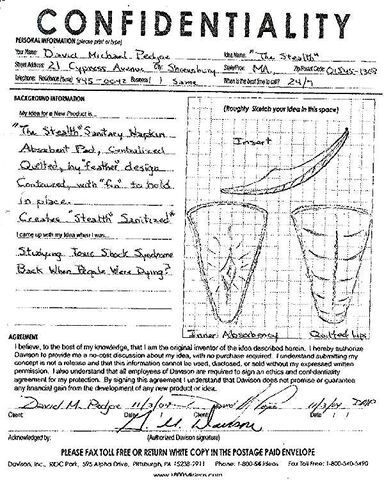 CONFIDENTIALITY
PERSONAL INFORMATION (please print or type)
Your Name: David Michael Pedpe Idea Name: "The Stealth"
Street Address: 21 Cypress Avenue Shrewsbury State/Prov: MA, Zip/Postal Code: 01545-1308
Telephone: Residence Phone: 845-0042 Business: Same When is the best time to call? 24/7
BACKGROUND INFORMATION
My Idea for a New Product is...
"The Stealth" Sanitary Napkin
Absorbent Pad, Centralized
Quilted, by "feather" design
Contoured, with "fin" to hold
in place.
Creates "Stealth" Sanitized"
I came up with my idea when I was...
Studying Toxic Shock Syndrome
Back When People Were Dying?
(Roughly Sketch your idea in this space)
Insert
Inner Absorbency
Quilted Lips
AGREEMENT
I believe, to the best of my knowledge, that I am the original inventor of the idea described herein. I hereby authorize
Davison to provide me a no-cost discussion about my idea, with no purchase required. I understand submitting my
concept is not a release and that this information cannot be used, disclosed, or sold without my expressed written
permission. I also understand that all employees of Davison are required to sign an ethics and confidentiality
agreement for my protection. By signing this agreement I understand that Davison does not promise or guarantee
any financial gain from the development of any new product or idea.
David M. Pedpe 11/3/04 11/3/04
Client Date Client Date
Acknowledged by: (Authorized Davison signature)
PLEASE FAX TOLL FREE OR RETURN WHITE COPY IN THE POSTAGE PAID ENVELOPE
Davison, Inc., RIDC Park, 595 Alpha Drive, Pittsburgh, PA 15238-2911 Phone: 1-800-54-Ideas Fax Toll Free: 1-800-540-5490